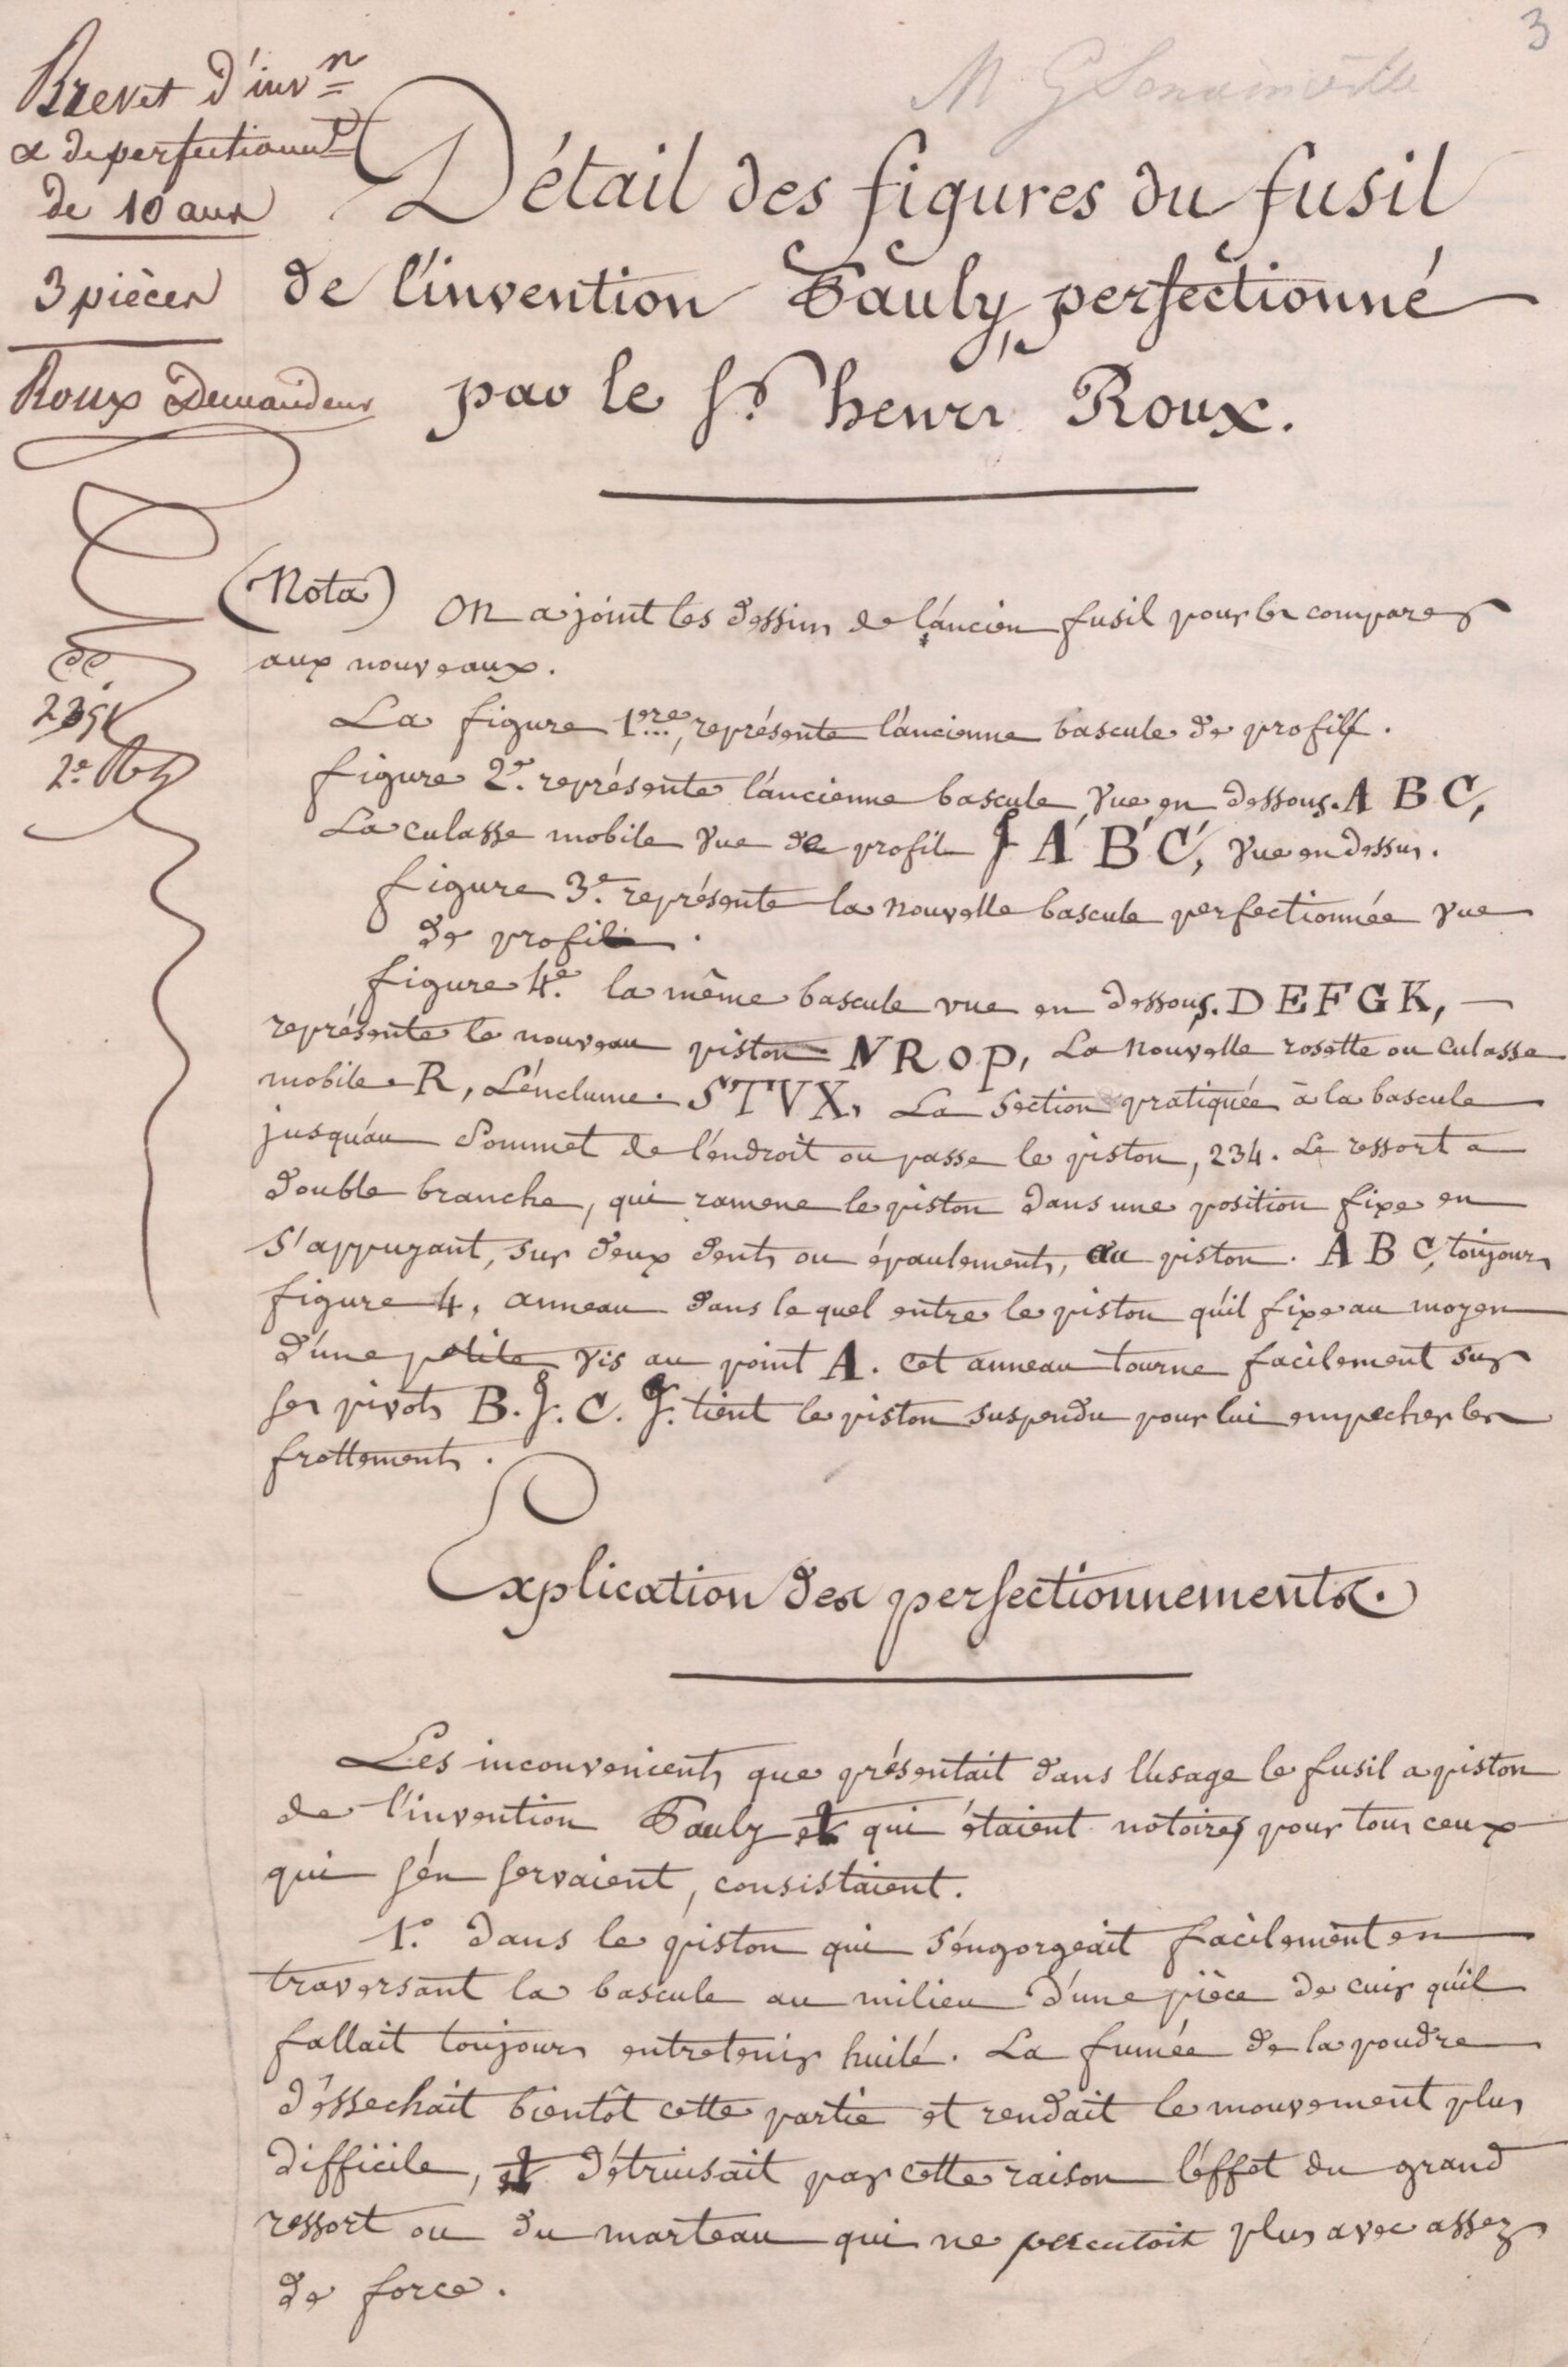 3
Brevet d'inv.n
& de perfectionn.t
de 10 ans
3 pièces
Roux Demandeur
Détail des figures du fusil
de l'invention Pauly, perfectionné
par le Sr. henri Roux.
(Nota) On a joint les dessins de l'ancien fusil pour les comparer
aux nouveaux.
La figure 1ere, représente l'ancienne bascule de profil.
figure 2e. représente l'ancienne bascule, vue en dessous. A B C,
La culasse mobile vue de profil & A' B' C', vue en dessus.
figure 3e. représente la nouvelle bascule perfectionnée vue
de profil.
figure 4e. la même bascule vue en dessous. D E F G K, —
représente le nouveau piston N R O P, La nouvelle rosette ou culasse
mobile. R, L'énclume. S T V X, La Section pratiquée à la bascule
jusqu'au Sommet de l'éndroit ou passe le piston, 234. Le ressort a
double branche, qui ramene le piston dans une position fixe en
s'appuyant, sur deux dents ou épaulements, du piston. A B C, toujours
figure 4, anneau dans le quel entre le piston qu'il fixe au moyen
d'une petite vis au point A. cet anneau tourne facilement sur
ses pivots B. &. C. &. tient le piston suspendu pour lui empecher les
frottements.
Explication des perfectionnements.
Les inconvenients que présentait dans l'usage le fusil a piston
de l'invention Pauly et qui étaient notoires pour tous ceux
qui s'én servaient, consistaient.
1.° dans le piston qui s'éngorgeait facilement en
traversant la bascule au milieu d'une pièce de cuir qu'il
fallait toujours entretenir huilé. La fumée de la poudre
désséchait bientôt cette partie et rendait le mouvement plus
difficile, et détruisait par cette raison l'éffet du grand
ressort ou du marteau qui ne percutoit plus avec assez
de force.